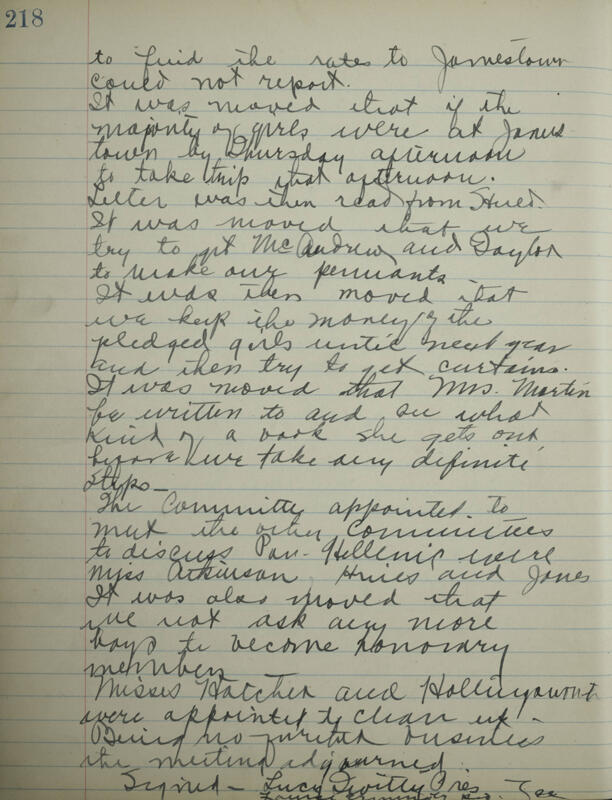 218
to find the rates to Jamestown
could not report.
It was moved that if the
majority of girls were at James
town by Thursday afternoon
to take trip that afternoon.
Letter was then read from
It was moved that we
try to get McAndrew and Taylor
to make our pennants
It was then moved that
we keep the money of the
pledged girls until next year
and then try to get curtains.
It was moved that Mrs. Martin
be written to and see what
kind of a book she gets out
before we take any definite
steps—
The Committee appointed to
meet the other Committees
to discuss Pan-Hellenic were
Miss Atkinson, Hines and Jones
It was also moved that
we not ask any more
boys to become honorary
members
Misses Hatcher and Hollingsworth
were appointed to clean up-
Being no further business
the meeting adjourned.
Signed— Lucy Pres.